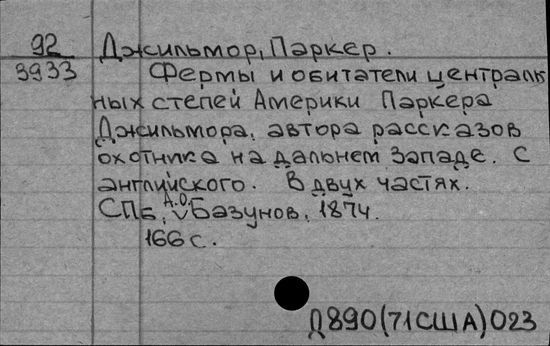 92 Джильмор, Паркер.
3933 Фермы и обитатели централь
ных степей Америки Паркера
Джильмора, автора рассказов
охотника на дальнем Западе. С
английского. В двух частях.
СПб, А.О. Базунов, 1874.
166 с.
Д890(71США)023